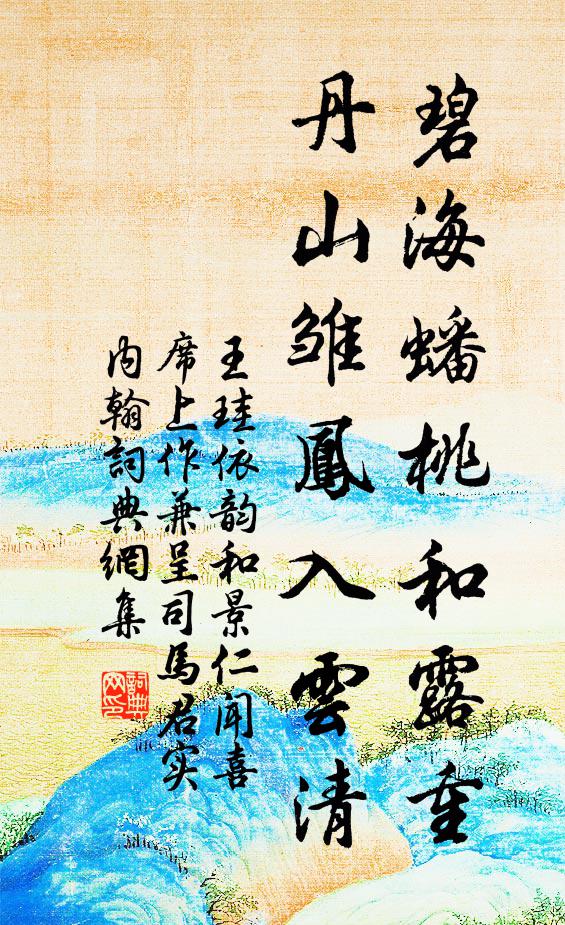 碧海蟠桃和露重
丹山雏鳳入雲清
王珪依韵和景仁闻喜
席上作兼呈司馬君实
内翰詞典網集
詞典网印